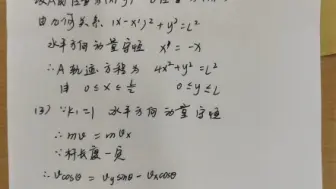 由几何关系 (x-x')²+y²=L²
水平方向动量守恒 x'=-x
∴A轨迹方程为 4x²+y²=L²
且 0≤x≤L/2 0≤y≤L
(3) ∵k₁=1 水平方向动量守恒
∴mv=mvx
∵杆长度一定
∴vcosθ=vysinθ-vxcosθ